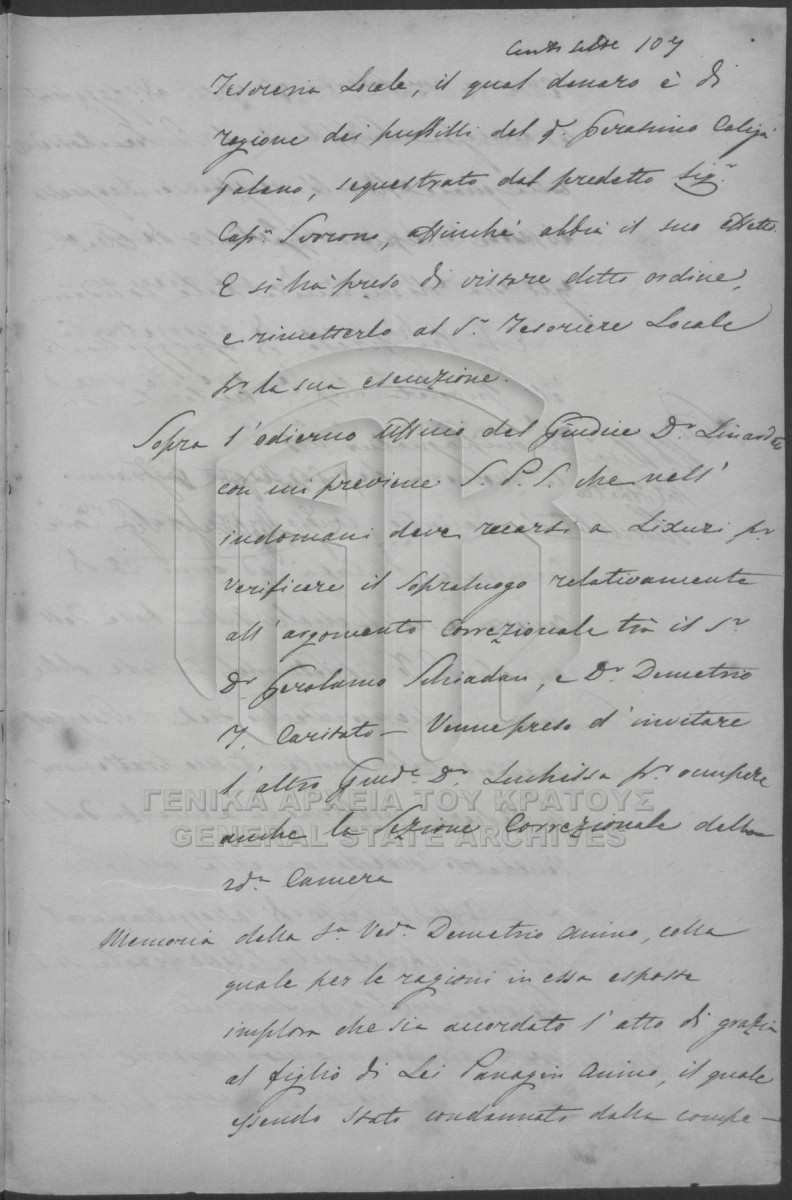 107
Tesoreria Locale, il qual denaro è di
ragione dei pupilli del q.m Gerasimo Caligà
Galeno, sequestrato dal predetto Sig.r
Cap.n Svorono, affinché abbia il suo effetto.
E si ha preso di vistare detto ordine,
e rimetterlo al S.r Tesoriere Locale
p.r la sua esecuzione.
Sopra l'odierno Ufficio del Giudice D.r
con cui previene S. P. S. che nell'
indomani deve recarsi a Lixuri p.r
verificare il sopraluogo relativamente
all'argomento Correzionale tra il S.r
D.r Gerolamo Schiadan, e D.r Demetrio
Caritato – Venne preso d'invitare
l'altro Giud.e D.r p.r occupare
anche la Sezione Correzionale della
Camera
Memoria della S.a Ved.a Demetrio Anino, colla
quale per le ragioni in essa esposte
implora che sia accordato l'atto di grazia
al figlio di Lei Panagin Anino, il quale
essendo stato condannato dalla compe–
ΓΕΝΙΚΑ ΑΡΧΕΙΑ ΤΟΥ ΚΡΑΤΟΥΣ
GENERAL STATE ARCHIVES